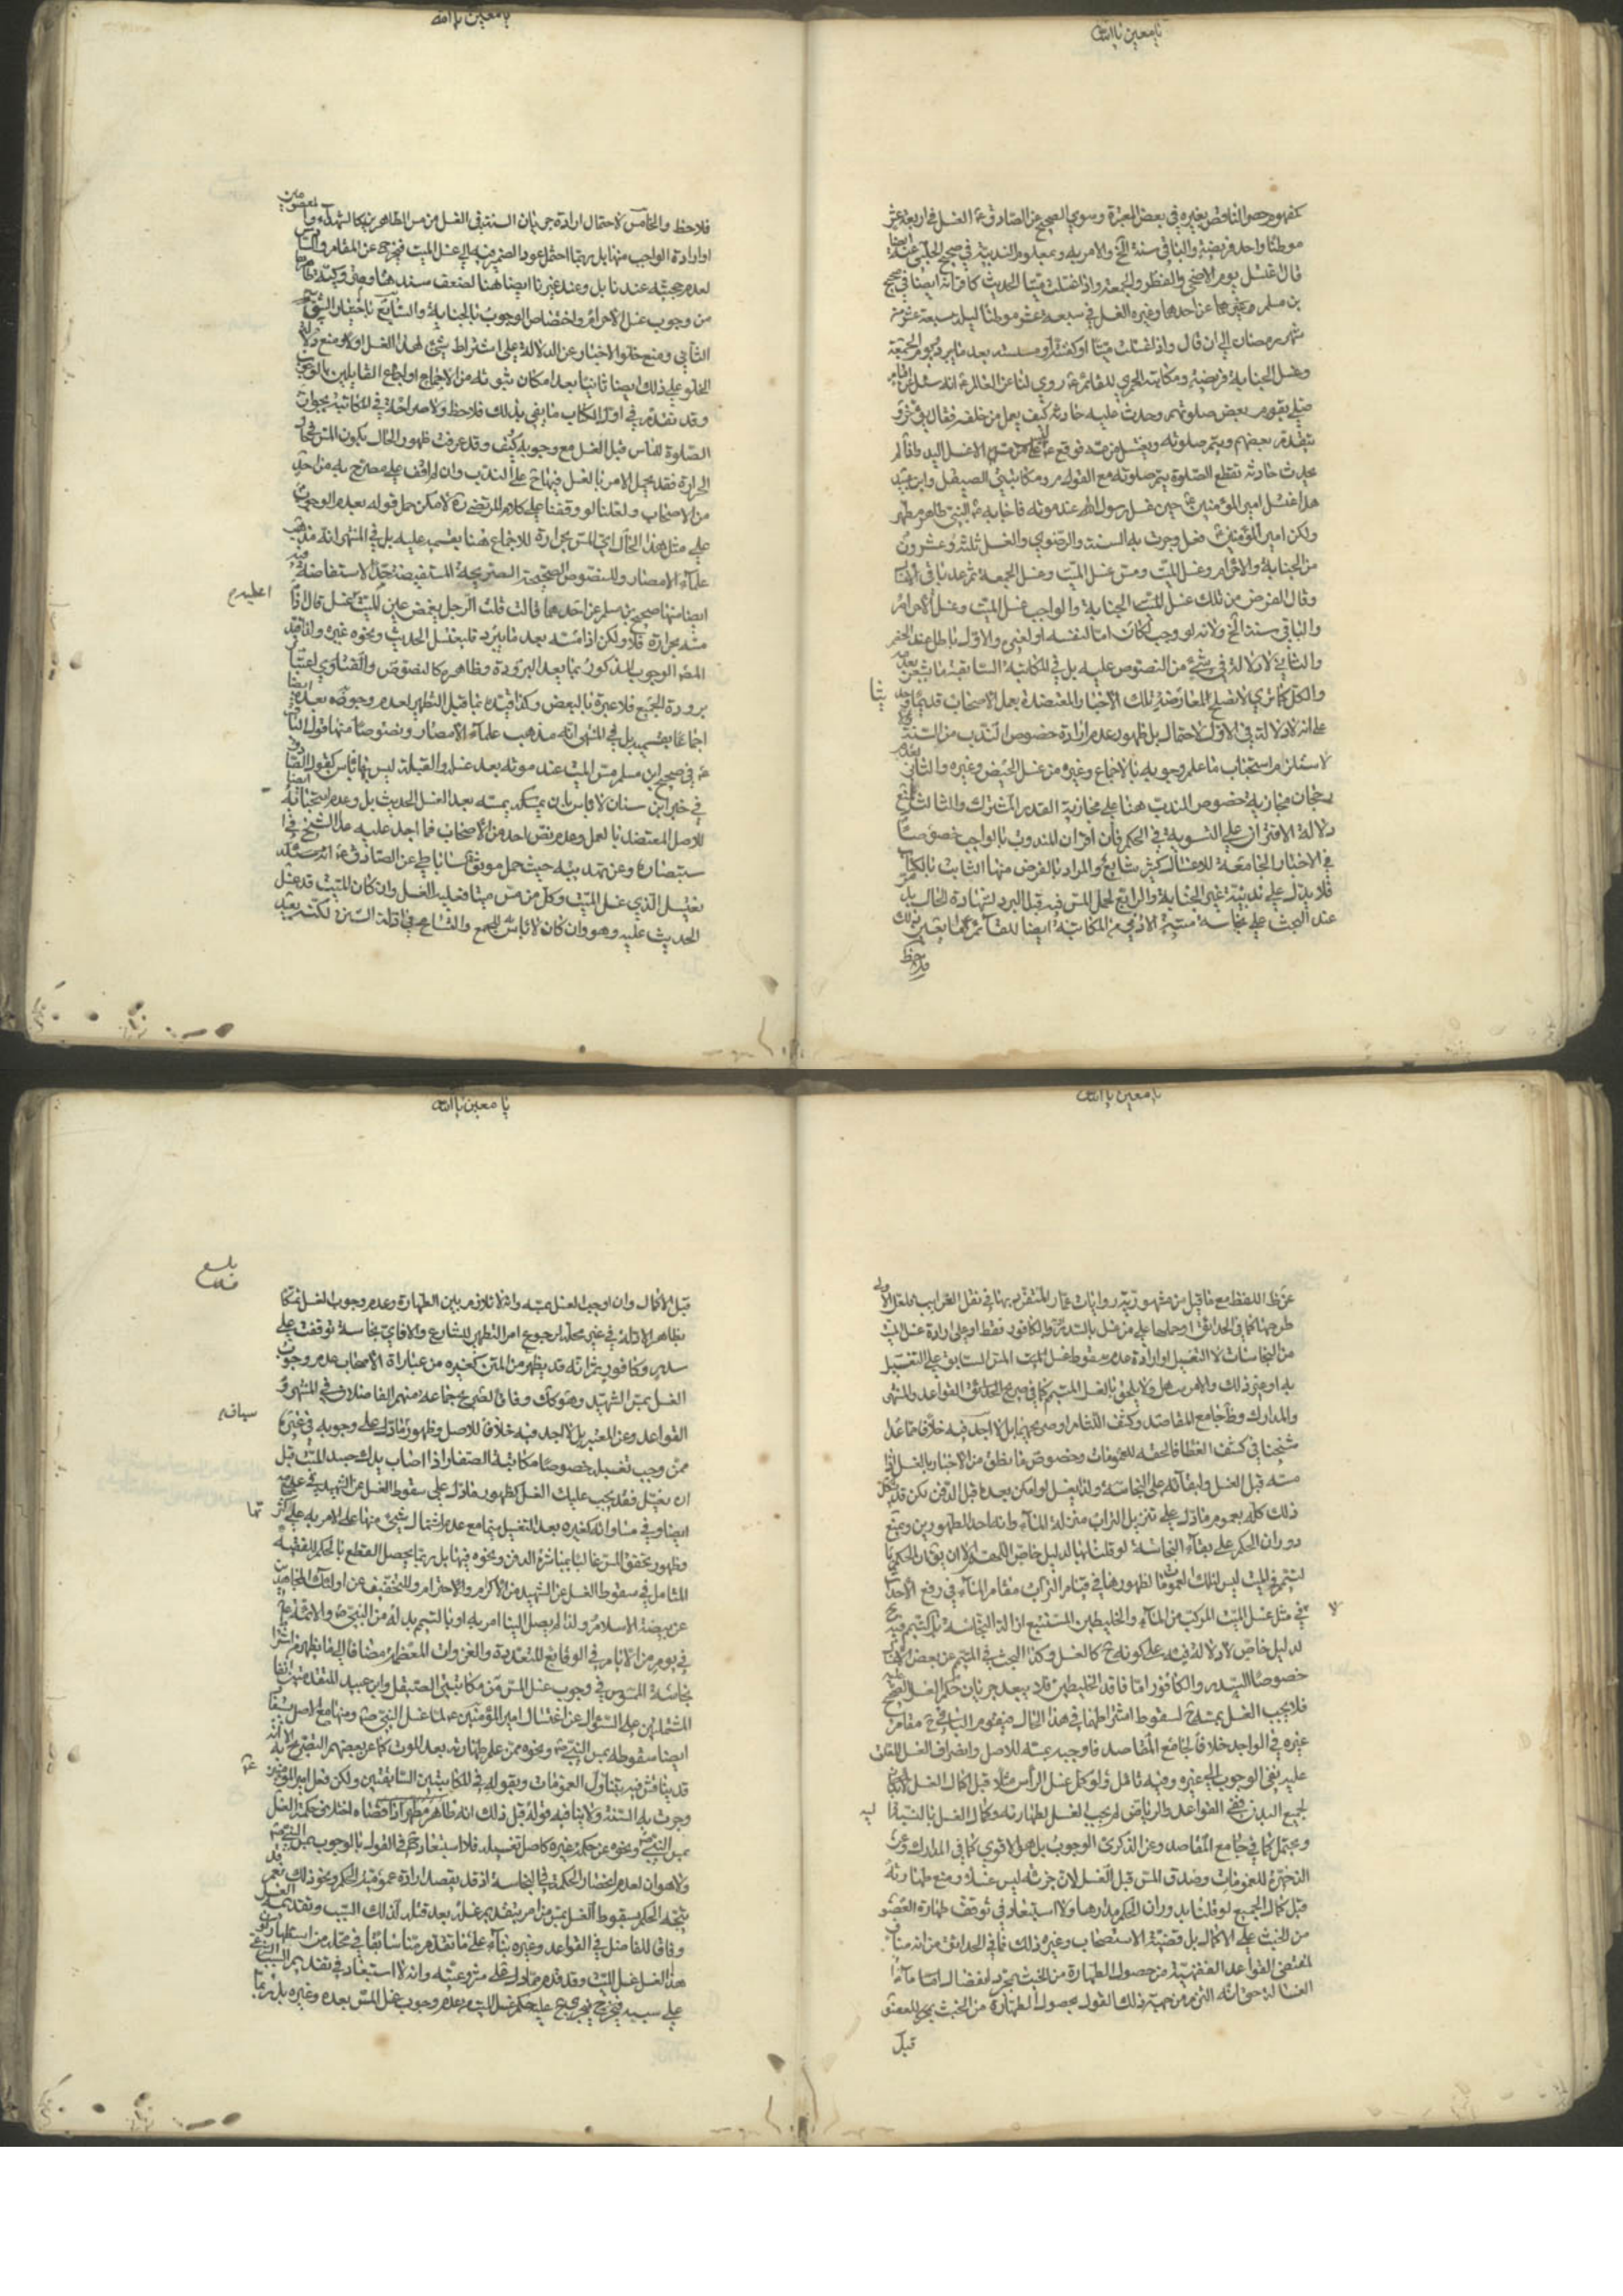 يا معين يا الله
كمفهوم حصر الناقض بغيره في بعض المعتبرة وسوي الصحيح عن الصادق ع الغسل في اربعة عشر
موطنا واحد فريضة والباقي سنة الخ والامر به وبمعلوم الندبية في صحيح الحلبي عنه ايضا
قال غسل يوم الاضحى والفطر والجمعة واذا غسلت ميتا الحديث كاقترانه ايضا في صحيح
بن مسلم وغيرها عن احدهما وغيره الغسل في سبعة عشر موطنا ليلة سبعة عشر من
شهر رمضان الى ان قال واذا غسلت ميتا او كفنته او مسسته بعد ما يبرد ويوم الجمعة
وغسل الجنابة فريضة ومكاتبة الحميري للقائم ع روي لنا عن العالم ع انه سئل عن امام
صلى بقوم بعض صلوتهم وحدث عليه حادثة كيف يعمل من خلفه فقال يؤخر و
يتقدم بعضهم ويتم صلوته ويغتسل من مسه فوقع ليس على من مسه الا غسل اليد واذا لم
يحدث حادثة تقطع الصلوة يتم صلوته مع القوم ومكاتبتي الصيقل وابن عبيد
هل اغتسل امير المؤمنين ع حين غسل رسول الله عند موته فاجابه ع النبي طاهر مطهر
ولكن امير المؤمنين فعل وجرت به السنة والرضوي والغسل ثلثة وعشرون
من الجنابة والاحرام وغسل الميت ومس غسل الميت وغسل الجمعة ثم عد باقي الاغسال
وقال الفرض من تلك غسل الجنابة والواجب غسل الميت وغسل الاحرام
والباقي سنة الخ ولانه لو وجب لكان اما لنفسه او لغيره والاول باطل عند الخصم
والثاني لا دلالة في شيء من النصوص عليه بل في المكاتبة السابقة ما يشعر بعدمه
والكل كما ترى لا تصلح لمعارضة تلك الاخبار المعتضدة بعمل الاصحاب قديما وحديثا
على انه لا دلالة في الاول لاحتمال بل ظهور عدم ارادة خصوص الندب من السنة
لاستلزام استحباب ما علم وجوبه بالاجماع وغيره من غسل الحيض وغيره والثاني
رجحان مجازية خصوص الندب هنا على مجازية القدر المشترك والثالث لمنع
دلالة الاقتران على التسوية في الحكم فان اقتران المندوب بالواجب خصوصا
في الاخبار الجامعة للاغسال كثير شايع والمراد بالفرض منها الثابت بالكتاب
فلا يدل على ندبية غير الجنابة والرابع لحمل المس فيه قبل البرد لشهادة الحال بل
عند البحث على نجاسة ميتة الآدمي من المكاتبة ايضا للقائم كما يعين ذلك
فلاحظ
يا معين يا الله
فلاحظ والخامس لاحتمال ارادة جريان السنة في الغسل من مس الطاهرين كالشهداء والمعصومين
او ارادة الواجب منها بل ربما احتمل عود الضمير فيه الى غسل الميت فيخرج عن المقام والسادس
لعدم حجيته عندنا بل وعند غيرنا ايضا هنا لضعف سنده هنا ومتنه وكيفية ظاهره
من وجوب غسل الاحرام واختصاص الوجوب بالجنابة والسابع باختيار الشق
الثاني ومنع خلو الاخبار عن الدلالة على اشتراط شيء لهذا الغسل اولا ومنع دلالة
الخلو على ذلك ايضا ثانيا بعد امكان ثبوته من الاجماع او اجماع القايلين بالوجوب
وقد تقدم في اول الكتاب ما يفي بذلك فلاحظ ولا صراحة في المكاتبة بجواز
الصلوة للناس قبل الغسل مع وجوبه كيف وقد عرفت ظهور الحال بكون المس في حال
الحرارة فقد يحمل الامر بالغسل فيها ح على الندب وان لم اقف على مصرح به من احد
من الاصحاب ولعلنا لو وقفنا على كلام المرتضى ره لامكن حمل قوله بعدم الوجوب
على مثل هذا الحال اي المس بحرارة للاجماع هنا بقسميه عليه بل في المنتهى انه مذهب
علماء الامصار وللنصوص الصحيحة الصريحة المستفيضة جدا الاستفاضة منه
ايضا منها صحيح بن مسلم عن احدهما قالت قلت الرجل يغمض عين الميت عليه غسل قال اذا
مسه بحرارة فلا ولكن اذا مسه بعد ما يبرد فليغتسل الحديث ونحوه غيره ولذا قيد
المصنف الوجوب المذكور بما بعد البرودة وظاهره كالنصوص والفتاوي اعتبار
برودة الجميع فلا عبرة بالبعض وكذا قيده بما قبل التطهير لعدم وجوبه بعده ايضا
اجماعا بقسميه بل في المنتهى انه مذهب علماء الامصار ونصوصا منها قول الباقر
ع في صحيح ابن مسلم مس الميت عند موته بعد غسله والقبلة ليس بها بأس كقول الصادق
في خبر ابن سنان لا بأس بان يمسه بعد الغسل الحديث بل وعدم استحبابه ايضا
للاصل المعتضد بالعمل وعدم نص احد من الاصحاب فما اجد عليه عدا الشيخ في
استبصاره وعن تهذيبه حيث حمل موثق عمار الساباطي عن الصادق ع انه سئله
يغتسل الذي غسل الميت وكل من مس ميتا فعليه الغسل وان كان الميت قد غسل
الحديث عليه وهو وان كان لا بأس للجمع والتسامح في ادلة السنن لكنه بعيد
يا معين يا الله
عن ظ اللفظ مع ما قيل من مشهورية روايات عمار المتفرد بها في نقل الغرايب فلعل الاولى
طرحها كما في الحدائق او حملها على من غسل بالسدر والكافور فقط او على ارادة غسل اليد
من النجاسات لا التغسيل او ارادة عدم سقوط غسل الميت المس السابق على التغسيل
به او غير ذلك والامر سهل ولا يلحق بالغسل التيمم كما في صريح الحدائق القواعد والمنتهى
والمدارك وظ جامع المقاصد وكشف اللثام او صريحهما بل لا اجد فيه خلافا ما عدا
شيخنا في كشف الغطا فالحقه للعمومات وخصوص ما نطق من الاخبار بالغسل اذا
مسه قبل الغسل وابقائه على النجاسة ولذا يغسل لو امكن بعده قبل الدفن لكن قد يشكل
ذلك كله بعموم ما دل على تنزيل التراب منزلة الماء وانه احد الطهورين ويمنع
دوران الحكم على بقاء النجاسة لو قلنا بها لدليل خاص اللهم الا ان يقال الحكم بها
لتيمم الميت ليس لتلك العمومات لظهورها في قيام التراب مقام الماء في رفع الاحداث
لا في مثل غسل الميت المركب من الماء والخليطين المستتبع ازالة النجاسة بل التيمم فيه
لدليل خاص لا دلالة فيه على كونه ح كالغسل وكذا البحث في التيمم عن بعض الاغسال
خصوصا السدر والكافور اما فاقد الخليطين فلا يبعد جريان حكم الغسل الصحيح عليه
فلا يجب الغسل بمسه ح لسقوط اشتراطها في هذا الحال فيقوم الباقي ح مقام
غيره في الواجد خلافا لجامع المقاصد فاوجبه بمسه للاصل وانصراف الغسل المعلق
عليه نفي الوجوب الى غيره وفيه تأمل ولو كمل غسل الرأس مثلا قبل اكمال الغسل
لجميع البدن ففي القواعد والرياض لم يجب الغسل لطهارته وكمال الغسل بالنسبة اليه
ويحتمل كما في جامع المقاصد وعن الذكرى الوجوب بل هو الاقوى كما في المدارك وعن
الذخيرة للعمومات وصدق المس قبل الغسل لان جزئه ليس غسلا ومنع طهارته
قبل كمال الجميع لو قلنا بدوران الحكم مدارها ولا استبعاد في توقف طهارة العضو
من الخبث على الاكمال بل قضية الاستصحاب وغيره ذلك فما في الحدائق من انه مناف
لمقتضى القواعد الفقهية من حصول الطهارة من الخبث بمجرد انفصال
الغسالة حتى انه التزم من جهة ذلك القول بحصول الطهارة من الخبث بمجرد العضو
قبل
يا معين يا الله
بلغ
قبل الاكمال وان اوجب الغسل بمسه وانه لا تلازم بين الطهارة وعدم وجوب الغسل تمسكا
بظاهر الادلة في غير محله لرجوع امر التطهير للشارع والا فاي نجاسة توقفت على
سدر وكافور ثم انه قد يظهر من المتن كغيره من عبارات الاصحاب عدم وجوب
الغسل بمس الشهيد وهو كذلك وفاقا لصريح جماعة منهم الفاضلان في المشهور
القواعد وعن المعتبر بل لا اجد فيه خلافا للاصل وظهور ما دل على وجوبه في غيره
ممن وجب تغسيله خصوصا مكاتبة الصفار اذا اصاب يدك جسد الميت قبل
ان يغسل فقد يجب عليك الغسل كظهور ما دل على سقوط الغسل عن الشهيد في عدمه
ايضا وفي مساواته لغيره بعد التغسيل سيما مع عدم اشتمال شيء منها على الامر به على كثرتها
وظهور تحقق المس غالبا بمباشرة الدفن ونحوه فيها بل ربما يحصل القطع بالحكم للفقيه
المتأمل في سقوط الغسل عن الشهيد من الاكرام والاحترام وللتخفيف عن اولئك المجاهدين
عن بيضة الاسلام ولذا لم يصل الينا امر به او بالتيمم بدله من النبي ص والائمة ع
في يوم من الايام في الوقايع المتعددة والغزوات العظام مضافا الى ما يظهر من اشتراط
نجاسة الممسوس في وجوب غسل المس من مكاتبتي الصيقل وابن عبيد المتقدمتين انفا
المشتملتين على السئوال عن اغتسال امير المؤمنين ع لما غسل النبي ص ومنها مع الاصل يستفاد
ايضا سقوطه بمس النبي ص ونحوه ممن علم طهارته بعد الموت كما عن بعضهم التصريح به الا انه
قد يناقش فيه بتناول العمومات وبقوله في المكاتبتين السابقتين ولكن فعل امير المؤمنين ع
وجرت به السنة ولا ينافيه قوله قبل ذلك انه طاهر مطهر اذ اقصاه اختلاف حكمة الغسل
بمس النبي ص ونحوه عن حكمة غيره كاصل تغسيله فلا استبعاد ح في القول بالوجوب بمس النبي ص
ولا هوان لعدم انحصار الحكمة في النجاسة اذ قد يقصد ارادة عمومية الحكم ونحو ذلك نعم قد
يتجه الحكم بسقوط الغسل بمس من امر بتقديم غسله بعد قتله لذلك السبب وتقديمه الغسل
وفاقا للفاضل في القواعد وغيره بناء على ما تقدم منا سابقا في محله من استظهار كون
هذا الغسل غسل الميت وقد قدم مما دل على مشروعيته وانه لا استبعاد في تقديم المسبب
على سببه فيخرج ح عليه حكم غسل الميت بعدم وجوب غسل المس بعده وغيره بل ربما